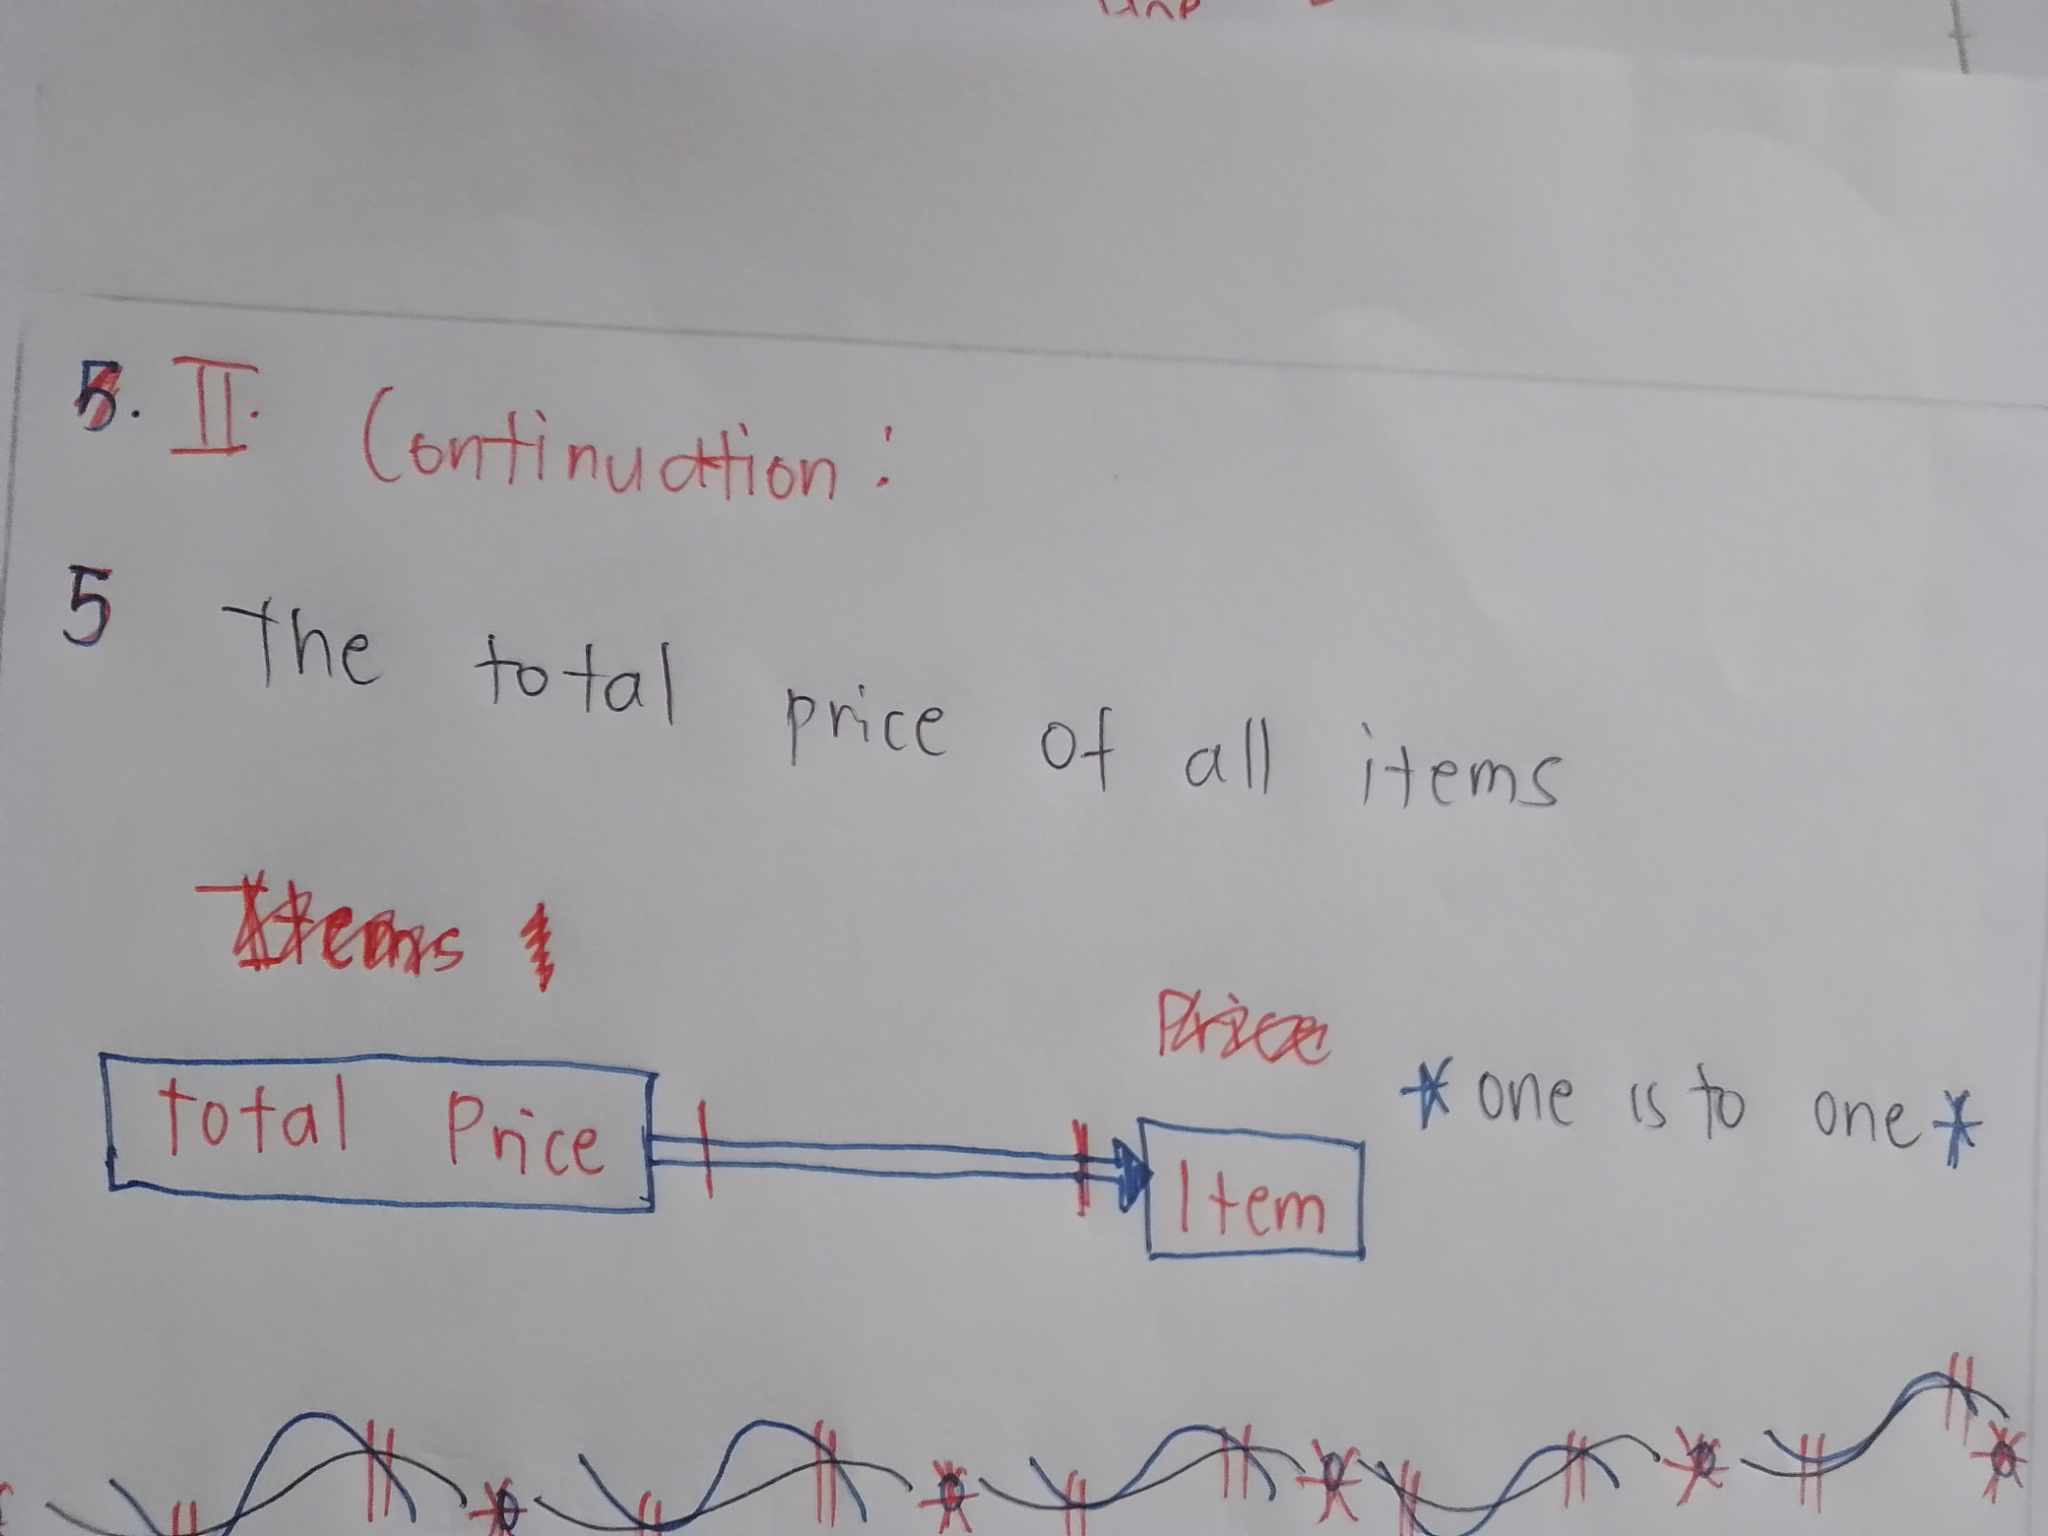 5. II. Continuation:
5 The total price of all items
Items
Price
total Price
Item
*one is to one*